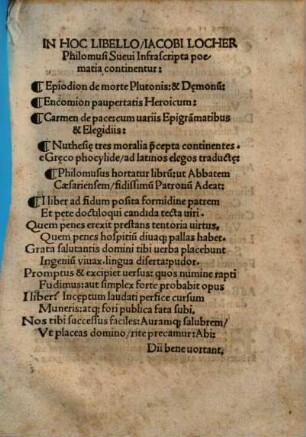 IN HOC LIBELLO/IACOBI LOCHER
Philomusi Sueui Infrascripta poe-
matia continentur:
¶ Epiodion de morte Plutonis: & Dęmonũ:
¶ Encomion paupertatis Heroicum:
¶ Carmen de pace: cum uariis Epigrãmatibus
& Elegidiis:
¶ Nuthesię tres moralia p̃cepta continentes.
e Gręco phocylide/ad latinos elegos traductę:
¶ Philomusus hortatur librũ: ut Abbatem
Cæsariensem/fidissimũ Patronũ Adeat:
¶ I liber ad fidum posita formidine patrem
Et pete doctiloqui candida tecta uiri.
Quem penes erexit prestans tentoria uirtus,
Quem penes hospitiũ diuaq; pallas habet.
Grata salutantis domini tibi uerba placebunt
Ingeniũ viuax. lingua diserta: pudor.
Promptus & excipiet uersus: quos numine rapti
Fudimus: aut simplex forte probabit opus
I liber: Inceptum laudati perfice cursum
Muneris: atq; fori publica fata subi.
Nos tibi successus faciles: Auramq; salubrem/
Vt placeas domino/rite precamur: Abi:
Dii bene uortant.